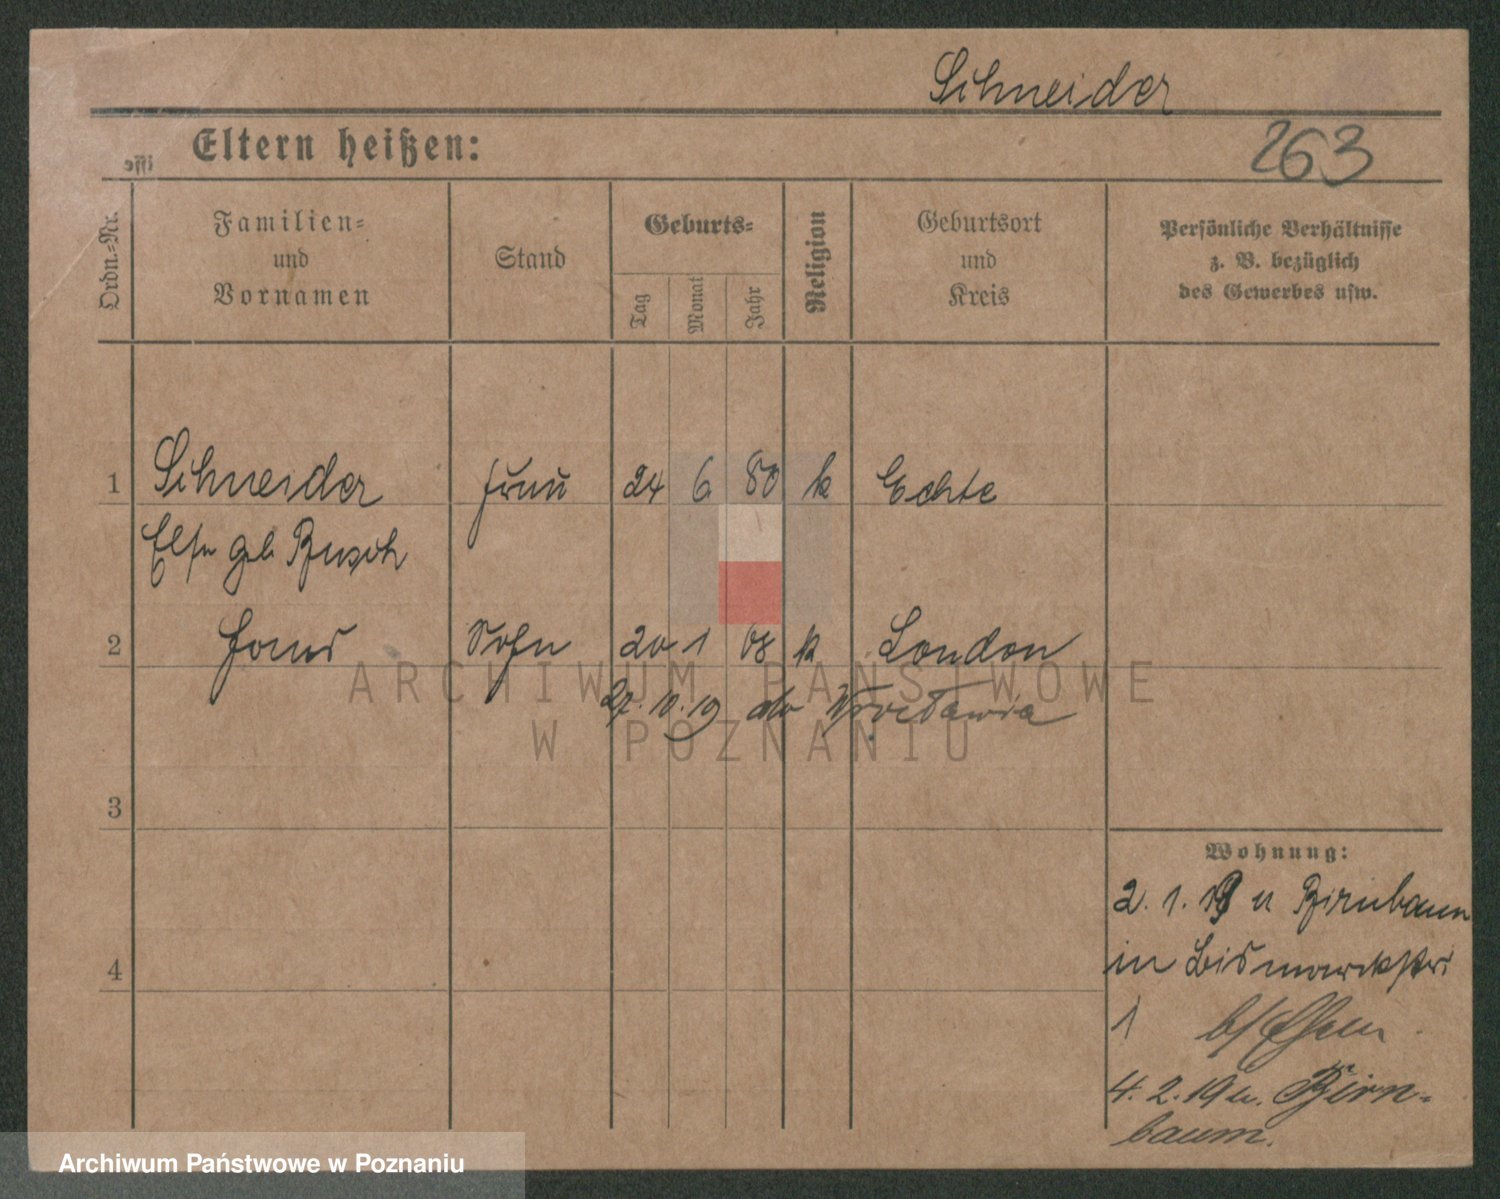 Schneider
Eltern heißen:
263
Ordn.-Nr.
Familien-
und
Vornamen
Stand
Geburts-
Tag
Monat
Jahr
Religion
Geburtsort
und
Kreis
Persönliche Verhältnisse
z. B. bezüglich
des Gewerbes usw.
1 Schneider Frau 24 6 80 k Echte
Else geb Busch
2 Sohn 20 1 08 k London
27.10.19 do Wrocławia
ARCHIWUM PAŃSTWOWE
W POZNANIU
3
Wohnung:
2.1.19 u Birnbaum
in Bismarckstr.
4
1 b/
4.2.19 u. Birn-
baum.
Archiwum Państwowe w Poznaniu